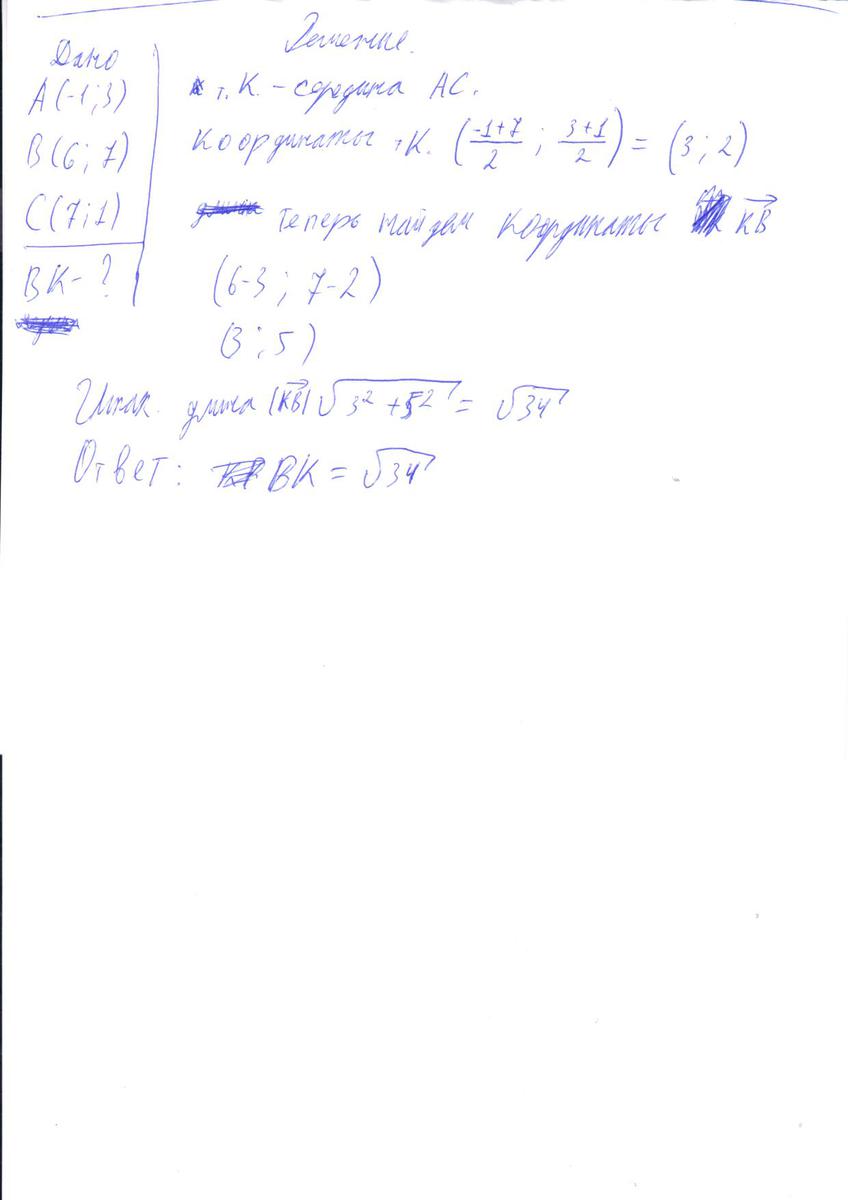 Дано
A(-1;3)
B(6;7)
C(7;1)
BK-?
Решение.
т.К. - середина AC.
координаты тК. (\frac{-1+7}{2} ; \frac{3+1}{2}) = (3;2)
теперь найдем координаты \overrightarrow{KB}
(6-3 ; 7-2)
(3 ; 5)
Итак. длина |\overrightarrow{KB}| \sqrt{3^2+5^2} = \sqrt{34}
Ответ: BK = \sqrt{34}